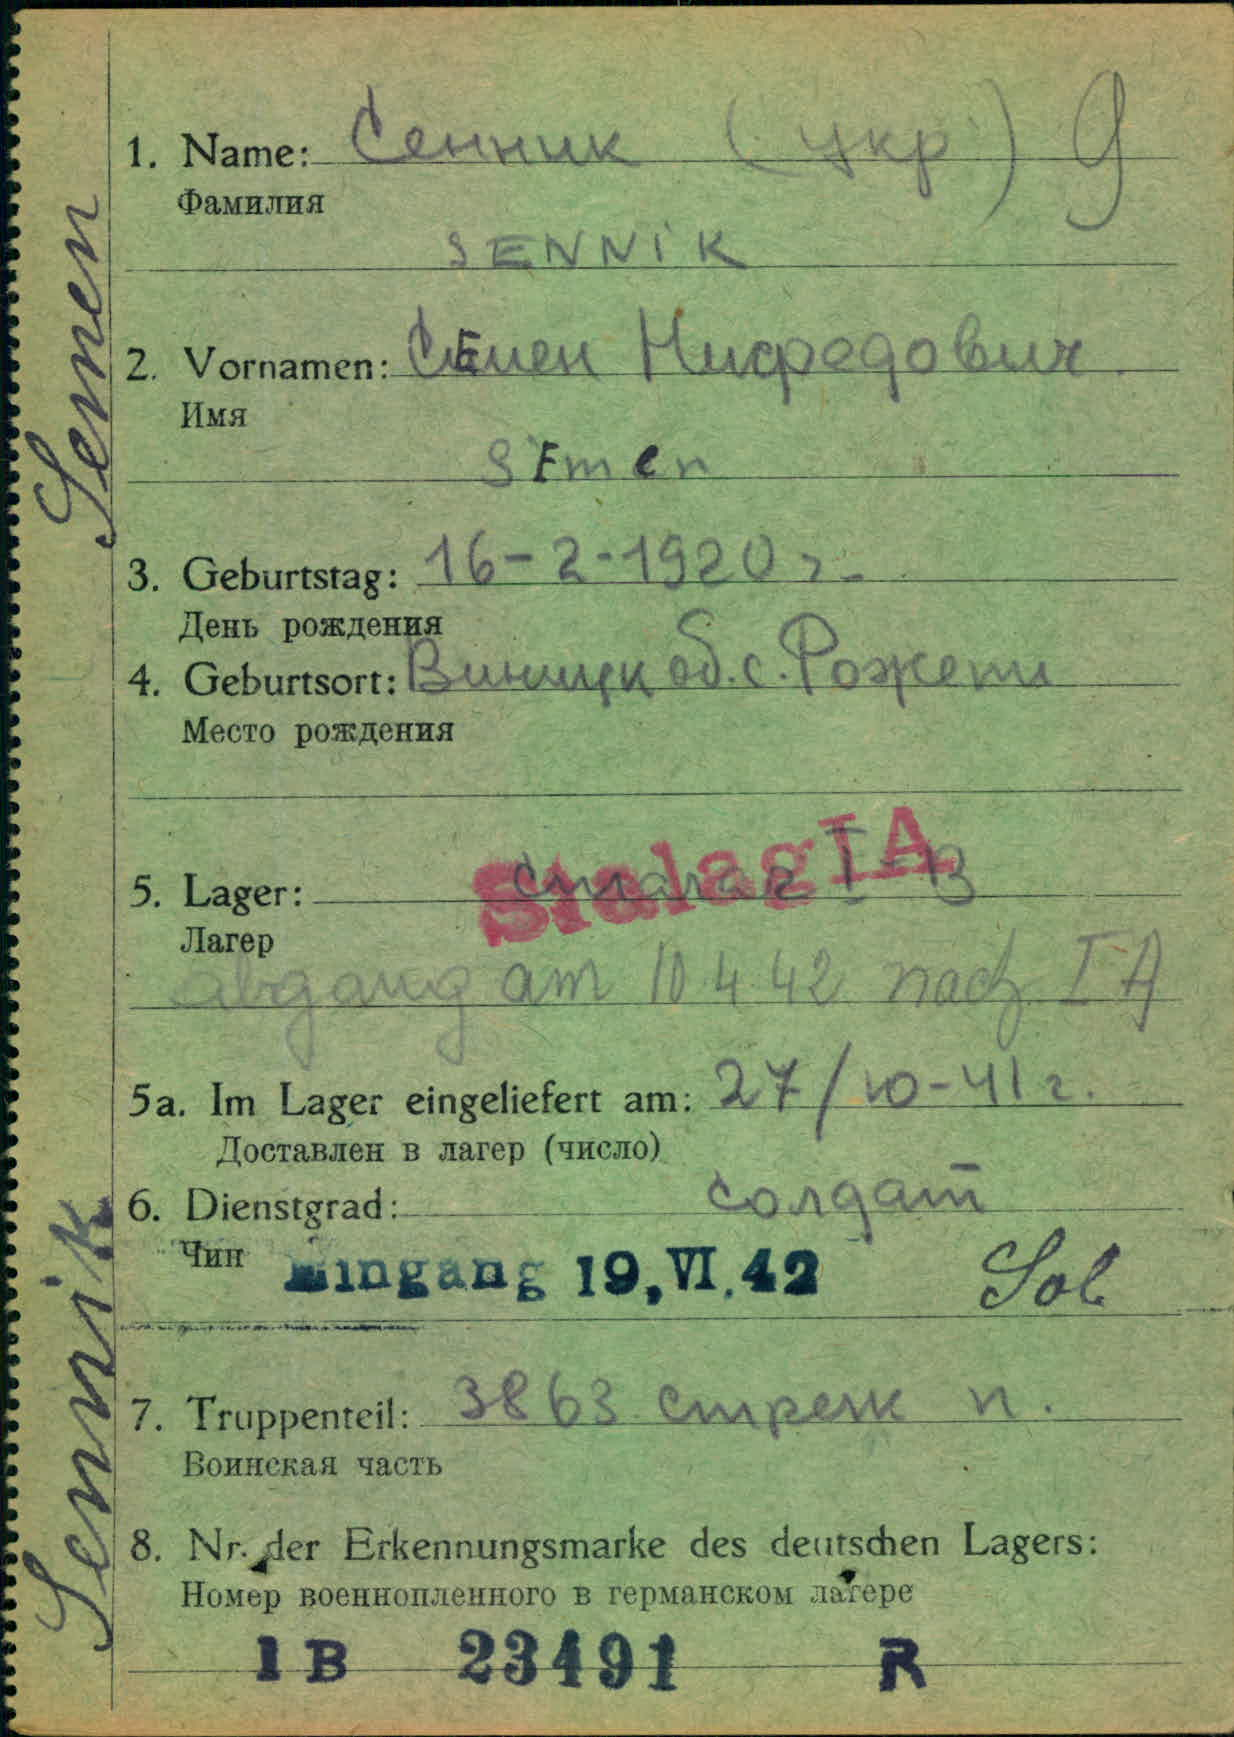 1. Name: Сенник (укр)
Фамилия
SENNIK
2. Vornamen: Семен Нисредович
Имя
SEmen
3. Geburtstag: 16-2-1920 г.
День рождения
4. Geburtsort: Виницк об. с. Рожети
Место рождения
5. Lager: Сталаг I-B
Stalag IA
Лагер
abgang am 10.4.42 nach I A
5a. Im Lager eingeliefert am: 27/10-41 г.
Доставлен в лагер (число)
6. Dienstgrad: солдат
Чин
Eingang 19.VI.42 Sol
7. Truppenteil: 3863 стрелк п.
Воинская часть
8. Nr. der Erkennungsmarke des deutschen Lagers:
Номер военнопленного в германском лагере
I B 23491 R
Sennik Semen